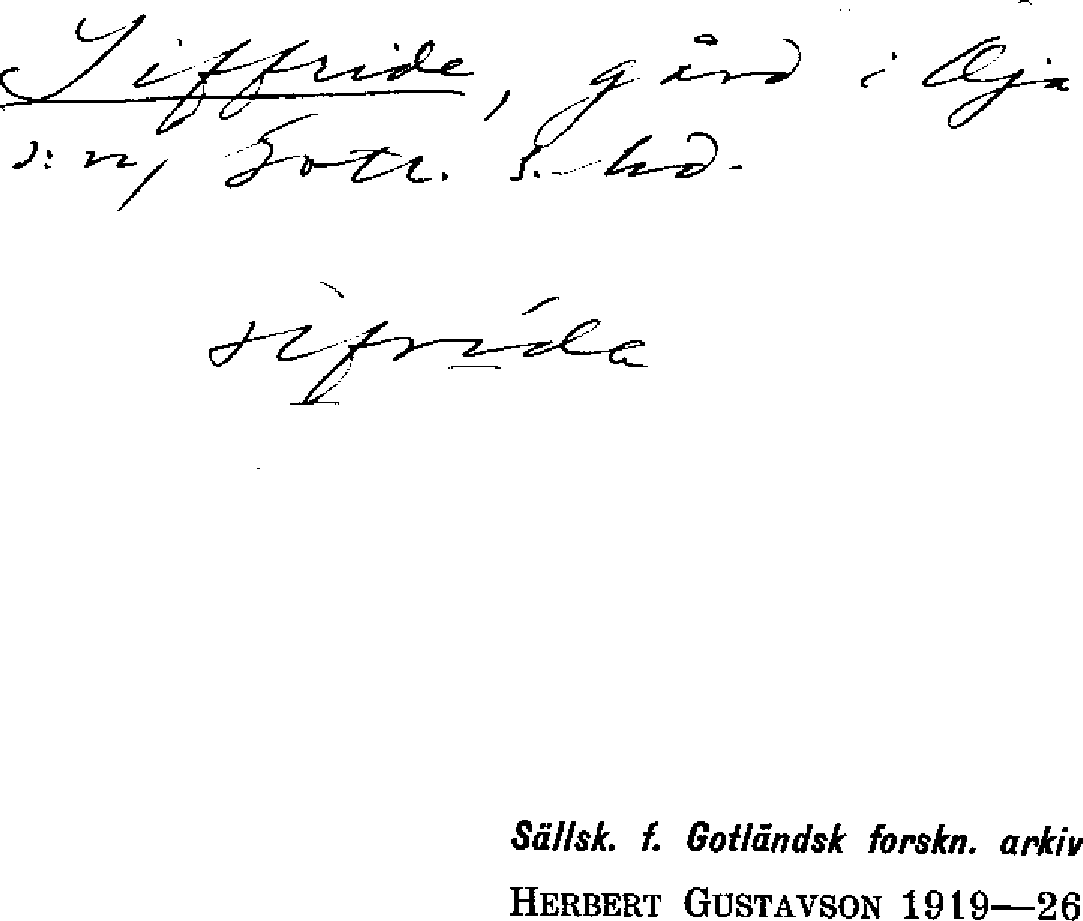 Siffride, gård i Öja
s:n, Gotl. s. hd.
sìfrída
Sällsk. f. Gotländsk forskn. arkiv
HERBERT GUSTAVSON 1919—26